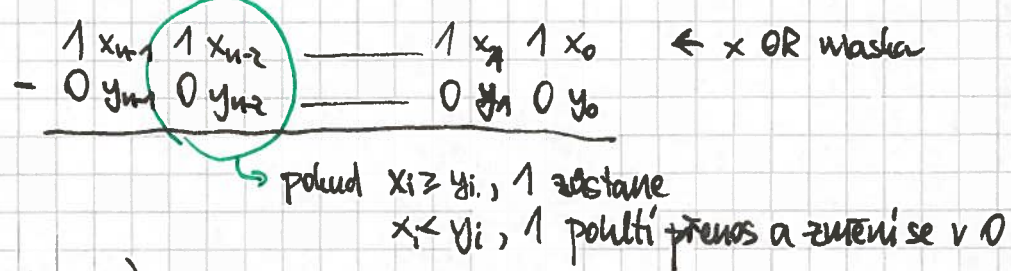 1 xₙ₋₁ 1 xₙ₋₂ ——— 1 x₁ 1 x₀ ← x OR maska
- 0 yₙ₋₁ 0 yₙ₋₂ ——— 0 y₁ 0 y₀
pokud xᵢ ≥ yᵢ, 1 zůstane
xᵢ < yᵢ, 1 pohltí přenos a změní se v 0